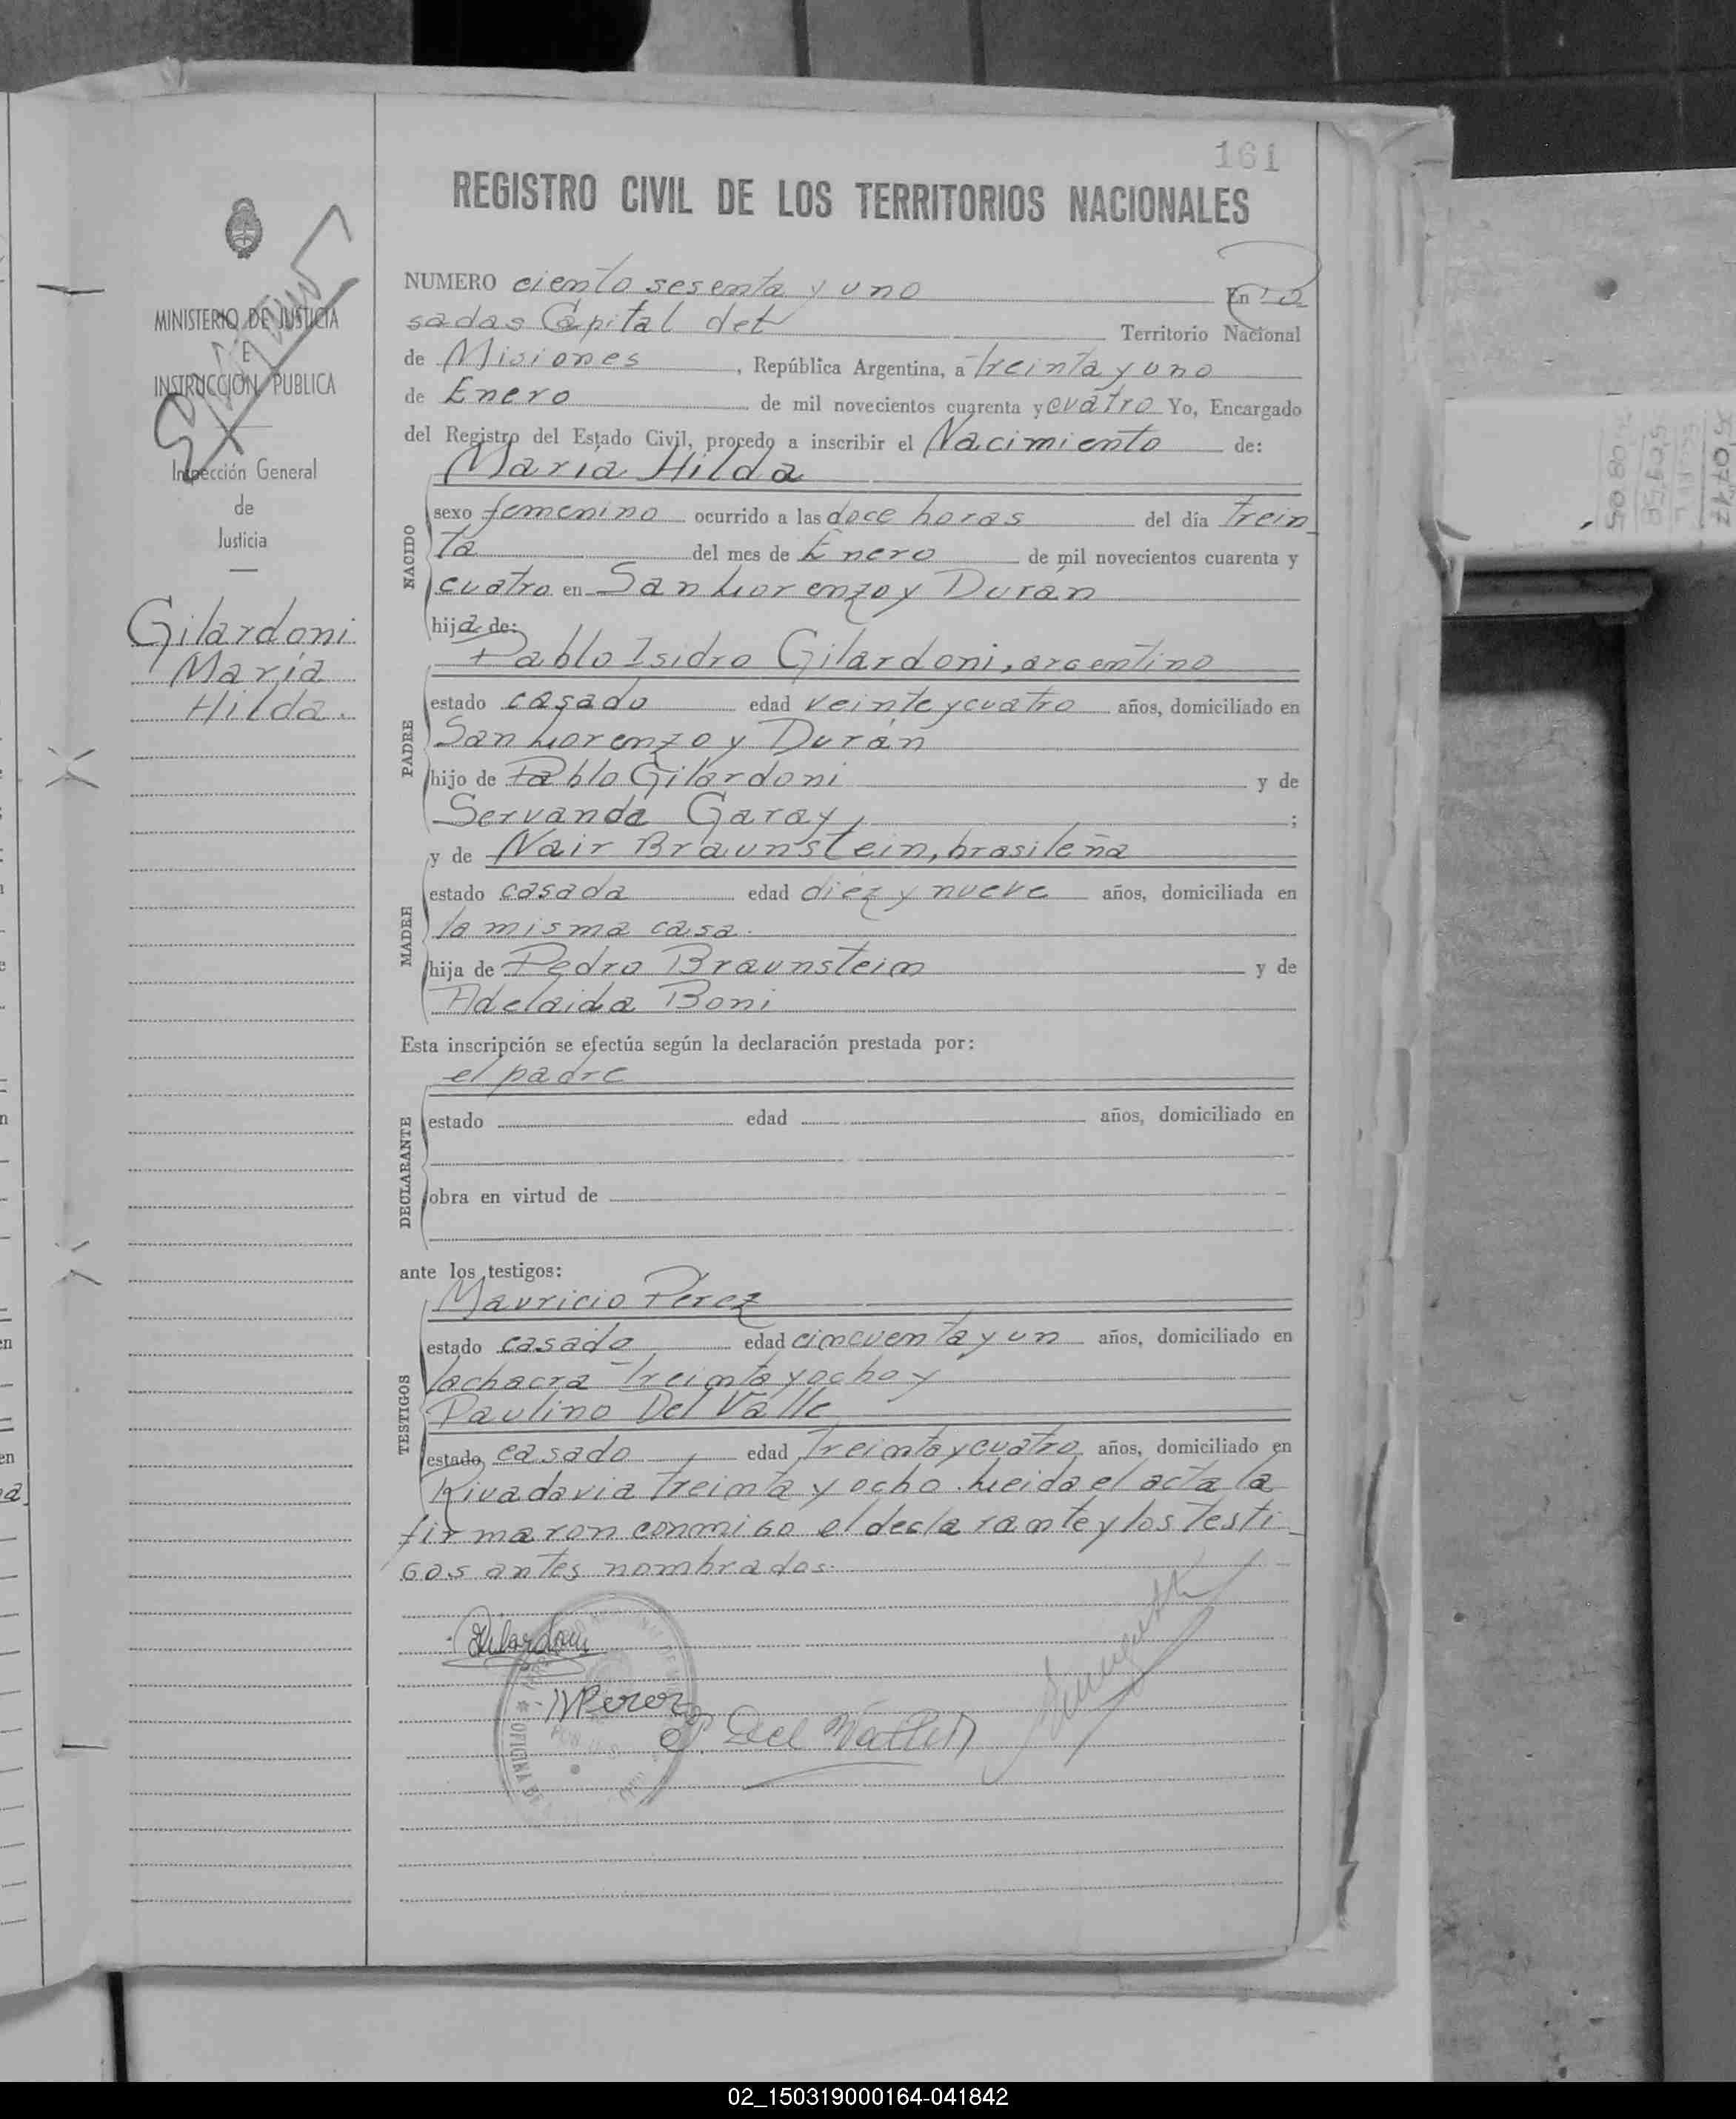 161
REGISTRO CIVIL DE LOS TERRITORIOS NACIONALES
MINISTERIO DE JUSTICIA
E
INSTRUCCION PUBLICA
Inspección General
de
Justicia
Gilardoni
María
Hilda.
NUMERO ciento sesenta y uno En Po
sadas Capital del Territorio Nacional
de Misiones, República Argentina, a treinta y uno
de Enero de mil novecientos cuarenta y cuatro Yo, Encargado
del Registro del Estado Civil, procedo a inscribir el Nacimiento de:
María Hilda
NACIDO
sexo femenino ocurrido a las doce horas del día trein
ta del mes de Enero de mil novecientos cuarenta y
cuatro en San Lorenzo y Durán
hija de:
Pablo Isidro Gilardoni, argentino
PADRE
estado casado edad veinte y cuatro años, domiciliado en
San Lorenzo y Durán
hijo de Pablo Gilardoni y de
Servanda Garay ;
y de Nair Braunstein, brasileña
MADRE
estado casada edad diez y nueve años, domiciliada en
la misma casa.
hija de Pedro Braunstein y de
Adelaida Boni
Esta inscripción se efectúa según la declaración prestada por:
el padre
DECLARANTE
estado edad años, domiciliado en
obra en virtud de
ante los testigos:
Mauricio Pérez
TESTIGOS
estado casado edad cincuenta y un años, domiciliado en
la chacra treinta y ocho y
Paulino Del Valle
estado casado edad treinta y cuatro años, domiciliado en
Rivadavia treinta y ocho. Leida el acta la
firmaron conmigo el declarante y los testi
gos antes nombrados.
Gilardoni
M Perez
P. Del Valle
OFICINA DE
02_150319000164-041842